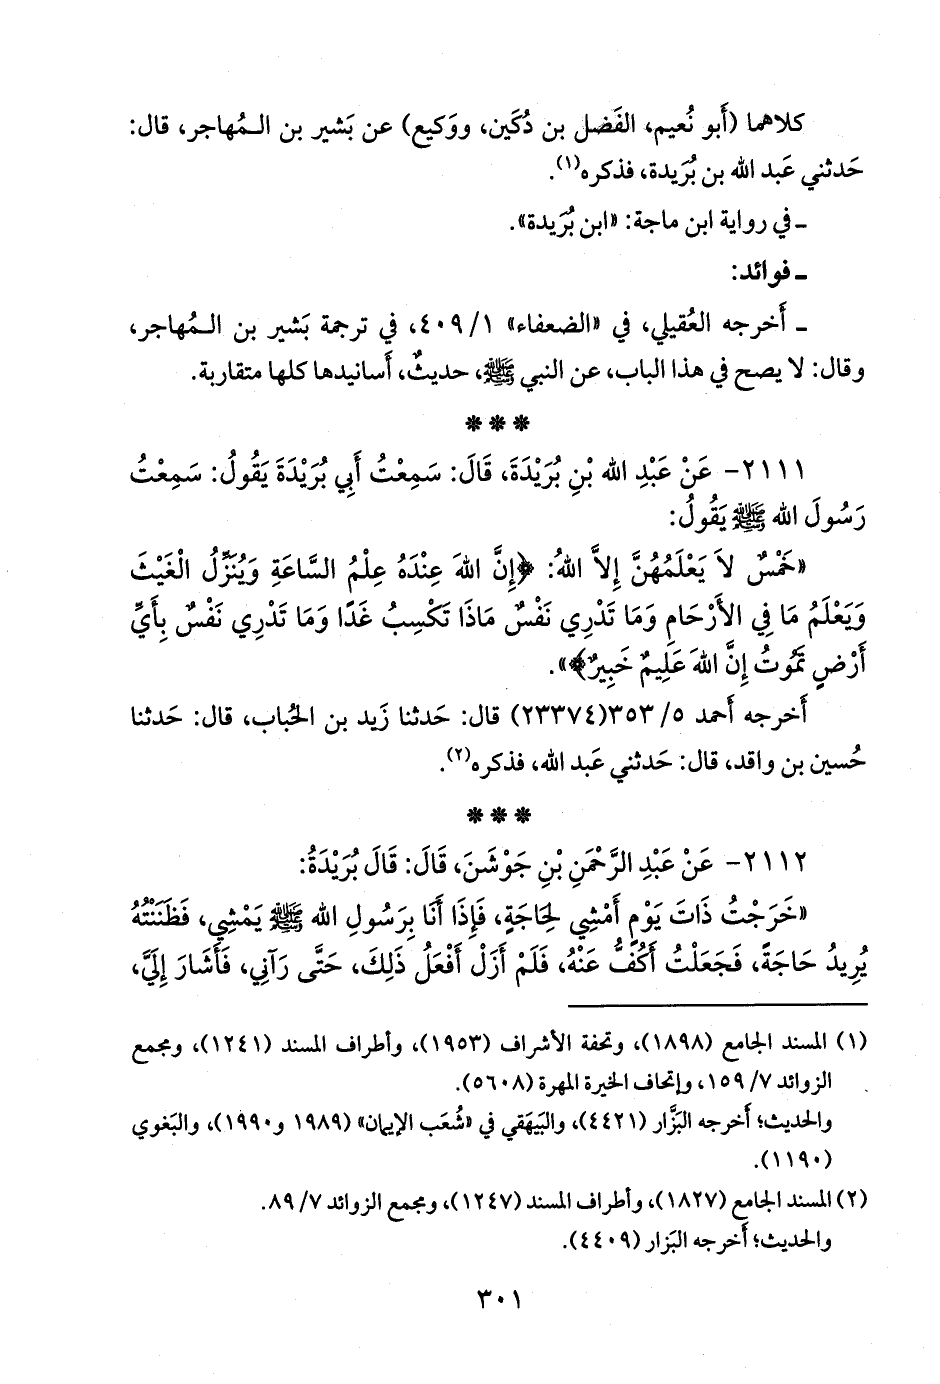 كلاهما (أَبو نُعيم، الفَضل بن دُكَين، ووَكيع) عن بَشير بن الـمُهاجر، قال:
حَدثني عَبد الله بن بُرَيدة، فذكره(١).
ـ في رواية ابن ماجة: «ابن بُرَيدة».
ـ فوائد:
ـ أَخرجه العُقيلي، في «الضعفاء» ١/ ٤٠٩، في ترجمة بَشير بن الـمُهاجر،
وقال: لا يصح في هذا الباب، عن النبي ﷺ، حديثٌ، أَسانيدها كلها متقاربة.
* * *
٢١١١- عَنْ عَبْدِ الله بْنِ بُرَيْدَةَ، قَالَ: سَمِعْتُ أَبِي بُرَيْدَةَ يَقُولُ: سَمِعْتُ
رَسُولَ الله ﷺ يَقُولُ:
«خَمْسٌ لاَ يَعْلَمُهُنَّ إِلاَّ اللهُ: ﴿إِنَّ اللهَ عِنْدَهُ عِلْمُ السَّاعَةِ وَيُنَزِّلُ الْغَيْثَ
وَيَعْلَمُ مَا فِي الأَرْحَامِ وَمَا تَدْرِي نَفْسٌ مَاذَا تَكْسِبُ غَدًا وَمَا تَدْرِي نَفْسٌ بِأَيِّ
أَرْضٍ تَمُوتُ إِنَّ اللهَ عَلِيمٌ خَبِيرٌ﴾».
أَخرجه أَحمد ٥/ ٣٥٣(٢٣٣٧٤) قال: حَدثنا زَيد بن الحُباب، قال: حَدثنا
حُسين بن واقد، قال: حَدثني عَبد الله، فذكره(٢).
* * *
٢١١٢- عَنْ عَبْدِ الرَّحْمَنِ بْنِ جَوْشَنَ، قَالَ: قَالَ بُرَيْدَةُ:
«خَرَجْتُ ذَاتَ يَوْمٍ أَمْشِي لِحَاجَةٍ، فَإِذَا أَنَا بِرَسُولِ الله ﷺ يَمْشِي، فَظَنَنْتُهُ
يُرِيدُ حَاجَةً، فَجَعَلْتُ أَكُفُّ عَنْهُ، فَلَمْ أَزَلْ أَفْعَلُ ذَلِكَ، حَتَّى رَآنِي، فَأَشَارَ إِلَيَّ،
(١) المسند الجامع (١٨٩٨)، وتحفة الأشراف (١٩٥٣)، وأطراف المسند (١٢٤١)، ومجمع
الزوائد ٧/ ١٥٩، وإتحاف الخيرة المهرة (٥٦٠٨).
والحديث؛ أَخرجه البَزَّار (٤٤٢١)، والبَيهَقي في «شُعَب الإيمان» (١٩٨٩ و١٩٩٠)، والبَغوي
(١١٩٠).
(٢) المسند الجامع (١٨٢٧)، وأطراف المسند (١٢٤٧)، ومجمع الزوائد ٧/ ٨٩.
والحديث؛ أَخرجه البَزار (٤٤٠٩).
٣٠١